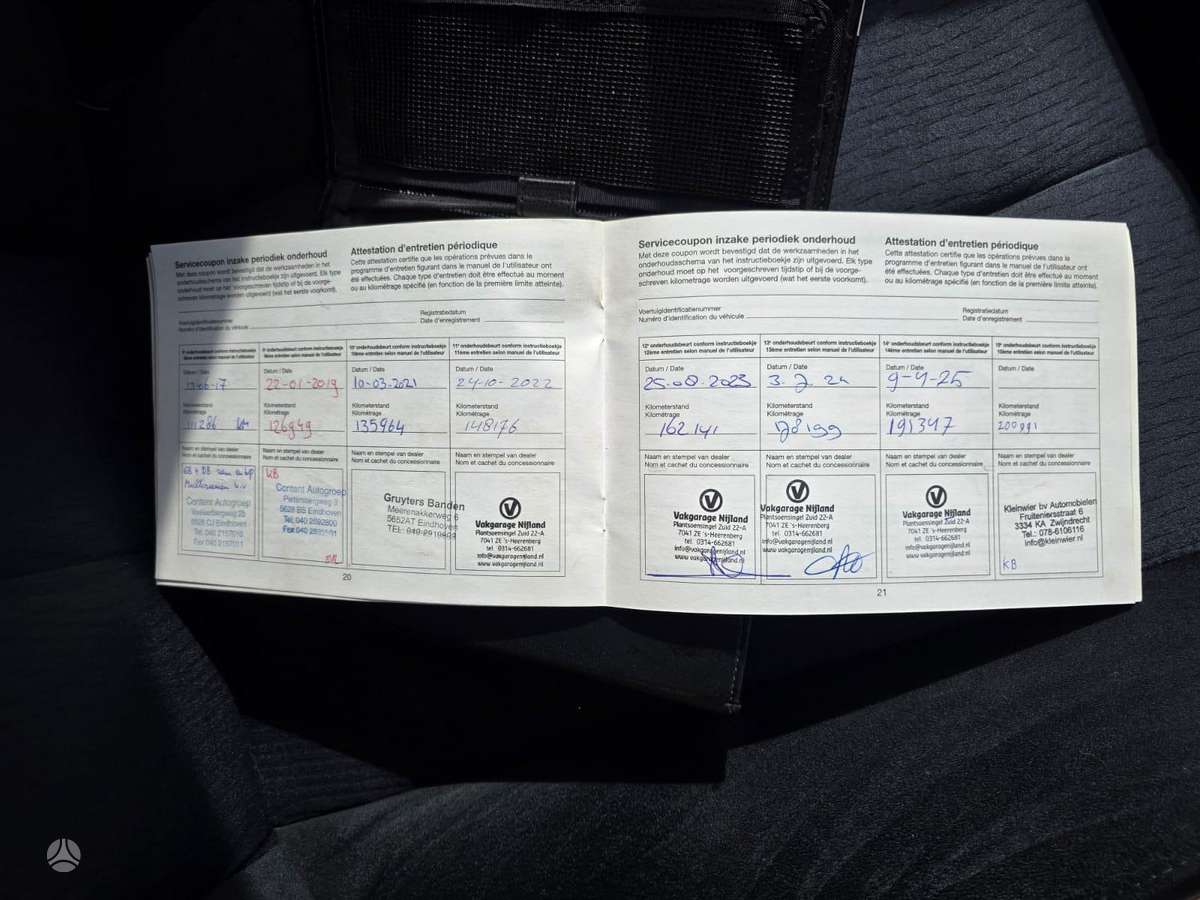 Servicecoupon inzake periodiek onderhoud
Met deze coupon wordt bevestigd dat de werkzaamheden in het
onderhoudsschema van het instructieboekje zijn uitgevoerd. Elk type
onderhoud moet op het voorgeschreven tijdstip of bij de voorge-
schreven kilometrage worden uitgevoerd (wat het eerste voorkomt).
Attestation d'entretien périodique
Cette attestation certifie que les opérations prévues dans le
programme d'entretien figurant dans le manuel de l'utilisateur ont
été effectuées. Chaque type d'entretien doit être effectué au moment
ou au kilométrage spécifié (en fonction de la première limite atteinte).
Voertuigidentificatienummer
Numéro d'identification du véhicule
Registratiedatum
Date d'enregistrement
9e onderhoudsbeurt conform instructieboekje
9ème entretien selon manuel de l'utilisateur
Datum / Date
Kilometerstand
Kilométrage
Naam en stempel van dealer
Nom et cachet du concessionnaire
Content Autogroep
5628 CJ Eindhoven
Tel. 040 2157010
Fax 040 2157011
Datum / Date
22-01-2019
Kilometerstand
Kilométrage
126949
Naam en stempel van dealer
Nom et cachet du concessionnaire
KB
Content Autogroep
5628 BS Eindhoven
10e onderhoudsbeurt conform instructieboekje
10ème entretien selon manuel de l'utilisateur
Datum / Date
10-03-2021
Kilometerstand
Kilométrage
135964
Naam en stempel van dealer
Nom et cachet du concessionnaire
Gruyters Banden
Meerenakkerweg 6
5652AT Eindhoven
11e onderhoudsbeurt conform instructieboekje
11ème entretien selon manuel de l'utilisateur
Datum / Date
24-10-2022
Kilometerstand
Kilométrage
148176
Naam en stempel van dealer
Nom et cachet du concessionnaire
Vakgarage Nijland
Plantsoensingel Zuid 22-A
7041 ZE 's-Heerenberg
tel. 0314-662681
info@vakgaragenijland.nl
www.vakgaragenijland.nl
20
Servicecoupon inzake periodiek onderhoud
Met deze coupon wordt bevestigd dat de werkzaamheden in het
onderhoudsschema van het instructieboekje zijn uitgevoerd. Elk type
onderhoud moet op het voorgeschreven tijdstip of bij de voorge-
schreven kilometrage worden uitgevoerd (wat het eerste voorkomt).
Attestation d'entretien périodique
Cette attestation certifie que les opérations prévues dans le
programme d'entretien figurant dans le manuel de l'utilisateur ont
été effectuées. Chaque type d'entretien doit être effectué au moment
ou au kilométrage spécifié (en fonction de la première limite atteinte).
Voertuigidentificatienummer
Numéro d'identification du véhicule
Registratiedatum
Date d'enregistrement
12e onderhoudsbeurt conform instructieboekje
12ème entretien selon manuel de l'utilisateur
Datum / Date
25-08-2023
Kilometerstand
Kilométrage
162141
Naam en stempel van dealer
Nom et cachet du concessionnaire
Vakgarage Nijland
Plantsoensingel Zuid 22-A
7041 ZE 's-Heerenberg
tel. 0314-662681
info@vakgaragenijland.nl
www.vakgaragenijland.nl
13e onderhoudsbeurt conform instructieboekje
13ème entretien selon manuel de l'utilisateur
Datum / Date
Kilometerstand
Kilométrage
178199
Naam en stempel van dealer
Nom et cachet du concessionnaire
Vakgarage Nijland
Plantsoensingel Zuid 22-A
7041 ZE 's-Heerenberg
tel. 0314-662681
info@vakgaragenijland.nl
www.vakgaragenijland.nl
14e onderhoudsbeurt conform instructieboekje
14ème entretien selon manuel de l'utilisateur
Datum / Date
9-4-25
Kilometerstand
Kilométrage
191347
Naam en stempel van dealer
Nom et cachet du concessionnaire
Vakgarage Nijland
Plantsoensingel Zuid 22-A
7041 ZE 's-Heerenberg
tel. 0314-662681
info@vakgaragenijland.nl
www.vakgaragenijland.nl
15e onderhoudsbeurt conform instructieboekje
15ème entretien selon manuel de l'utilisateur
Datum / Date
Kilometerstand
Kilométrage
200991
Naam en stempel van dealer
Nom et cachet du concessionnaire
Kleinwier bv Automobielen
Fruitenierstraat 6
3334 KA Zwijndrecht
Tel.: 078-6106116
info@kleinwier.nl
KB
21